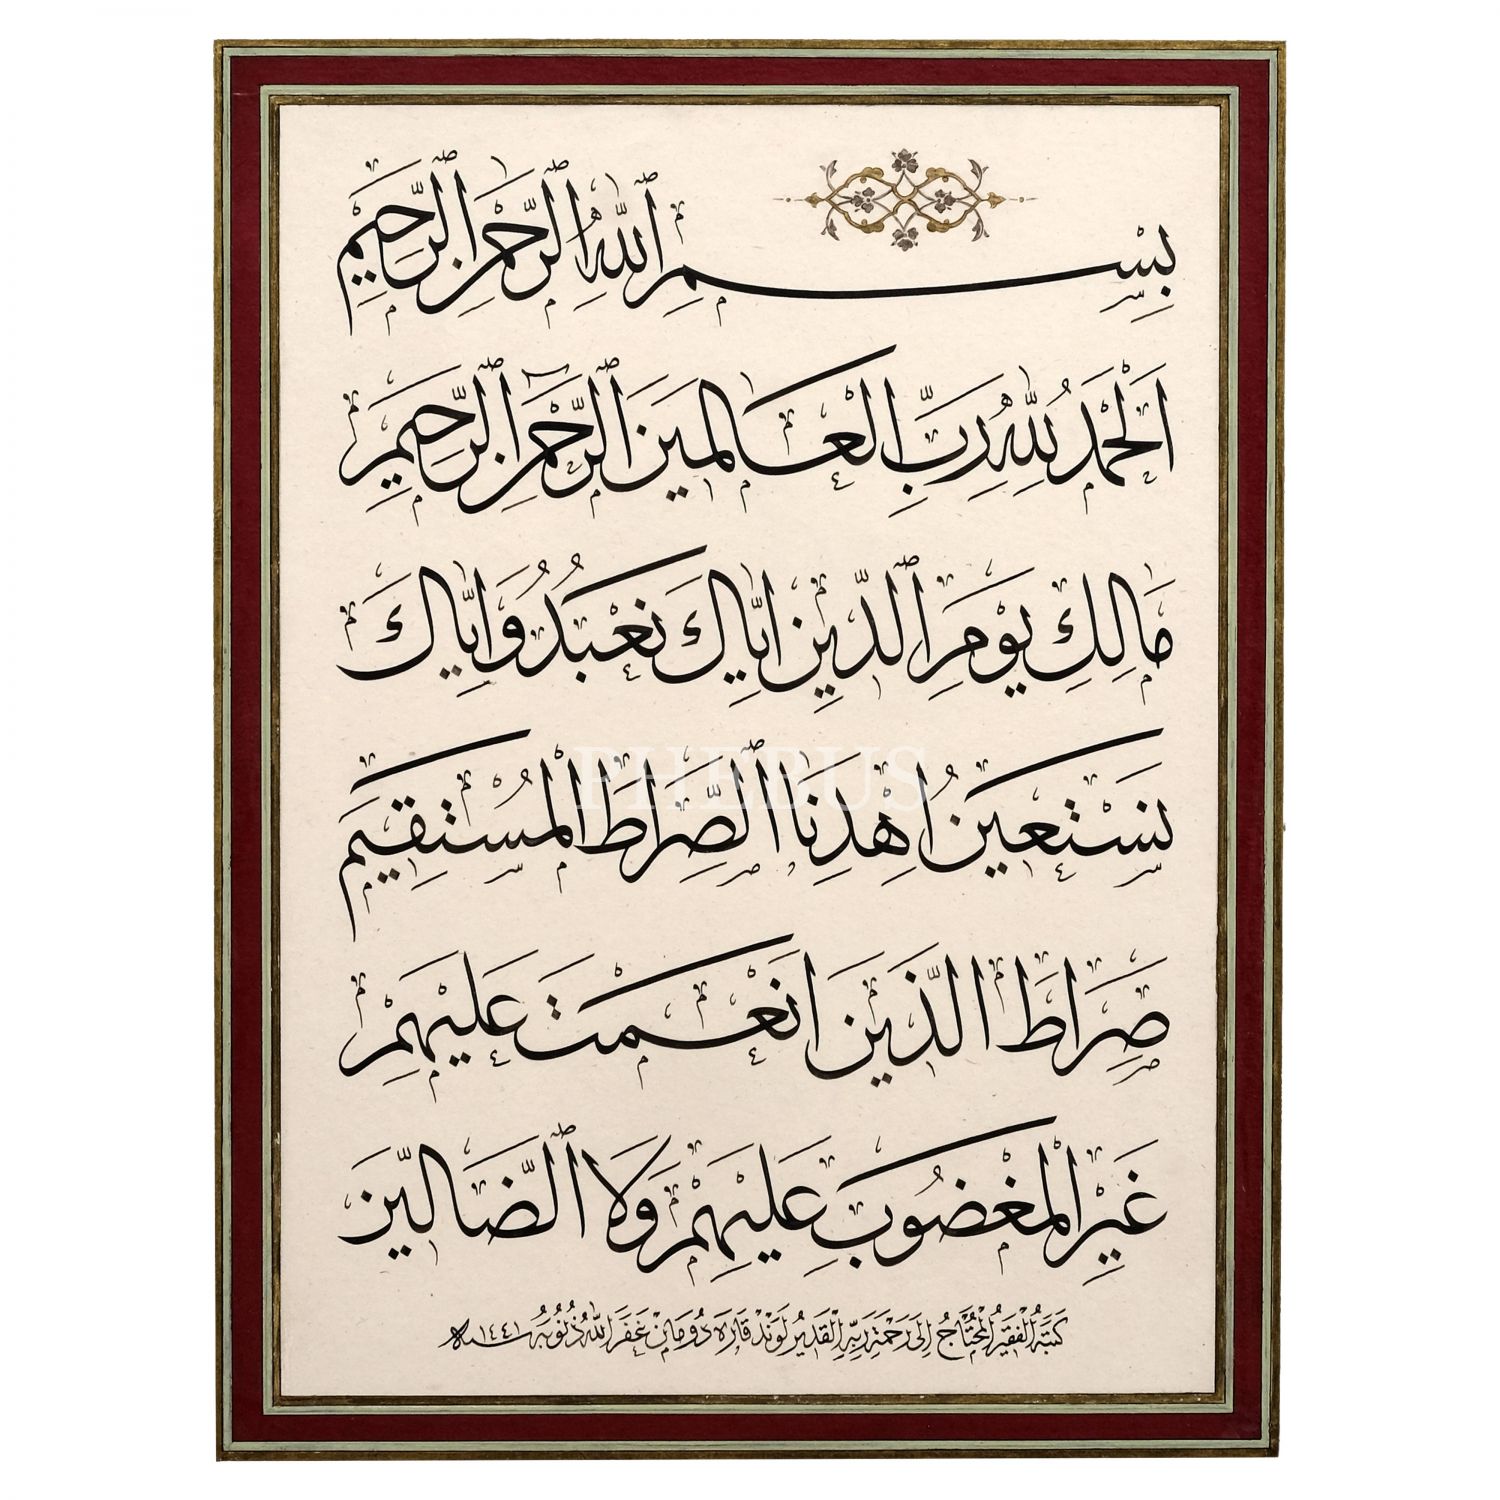 بِسْمِ ٱللّٰهِ ٱلرَّحْمٰنِ ٱلرَّحِيمِ
اَلْحَمْدُ لِلّٰهِ رَبِّ الْعَالَمِينَ ٱلرَّحْمٰنِ ٱلرَّحِيمِ
مَالِكِ يَوْمِ ٱلدِّينِ اِيَّاكَ نَعْبُدُ وَاِيَّاكَ
نَسْتَعِينُ اِهْدِنَا ٱلصِّرَاطَ الْمُسْتَقِيمَ
PHEBUS
صِرَاطَ الَّذِينَ اَنْعَمْتَ عَلَيْهِمْ
غَيْرِ الْمَغْضُوبِ عَلَيْهِمْ وَلَا ٱلضَّالِّينَ
كتبه الفقير المحتاج إلى رحمة ربه القدير لوند قاره دومان غفر الله ذنوبه سنه ١٤٤١